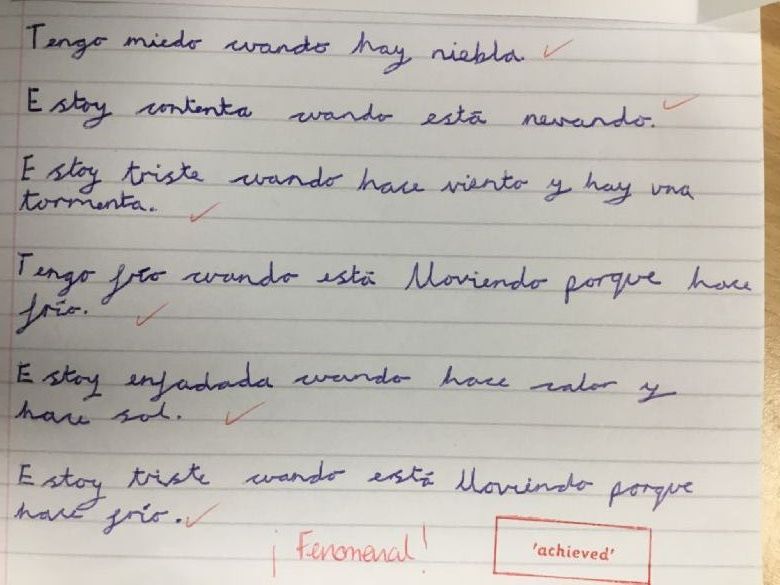 Tengo miedo cuando hay niebla.
Estoy contenta cuando está nevando.
Estoy triste cuando hace viento y hay una
tormenta.
Tengo frío cuando está lloviendo porque hace
frío.
Estoy enfadada cuando hace calor y
hace sol.
Estoy triste cuando está lloviendo porque
hace frío.
¡Fenomenal!
'achieved'